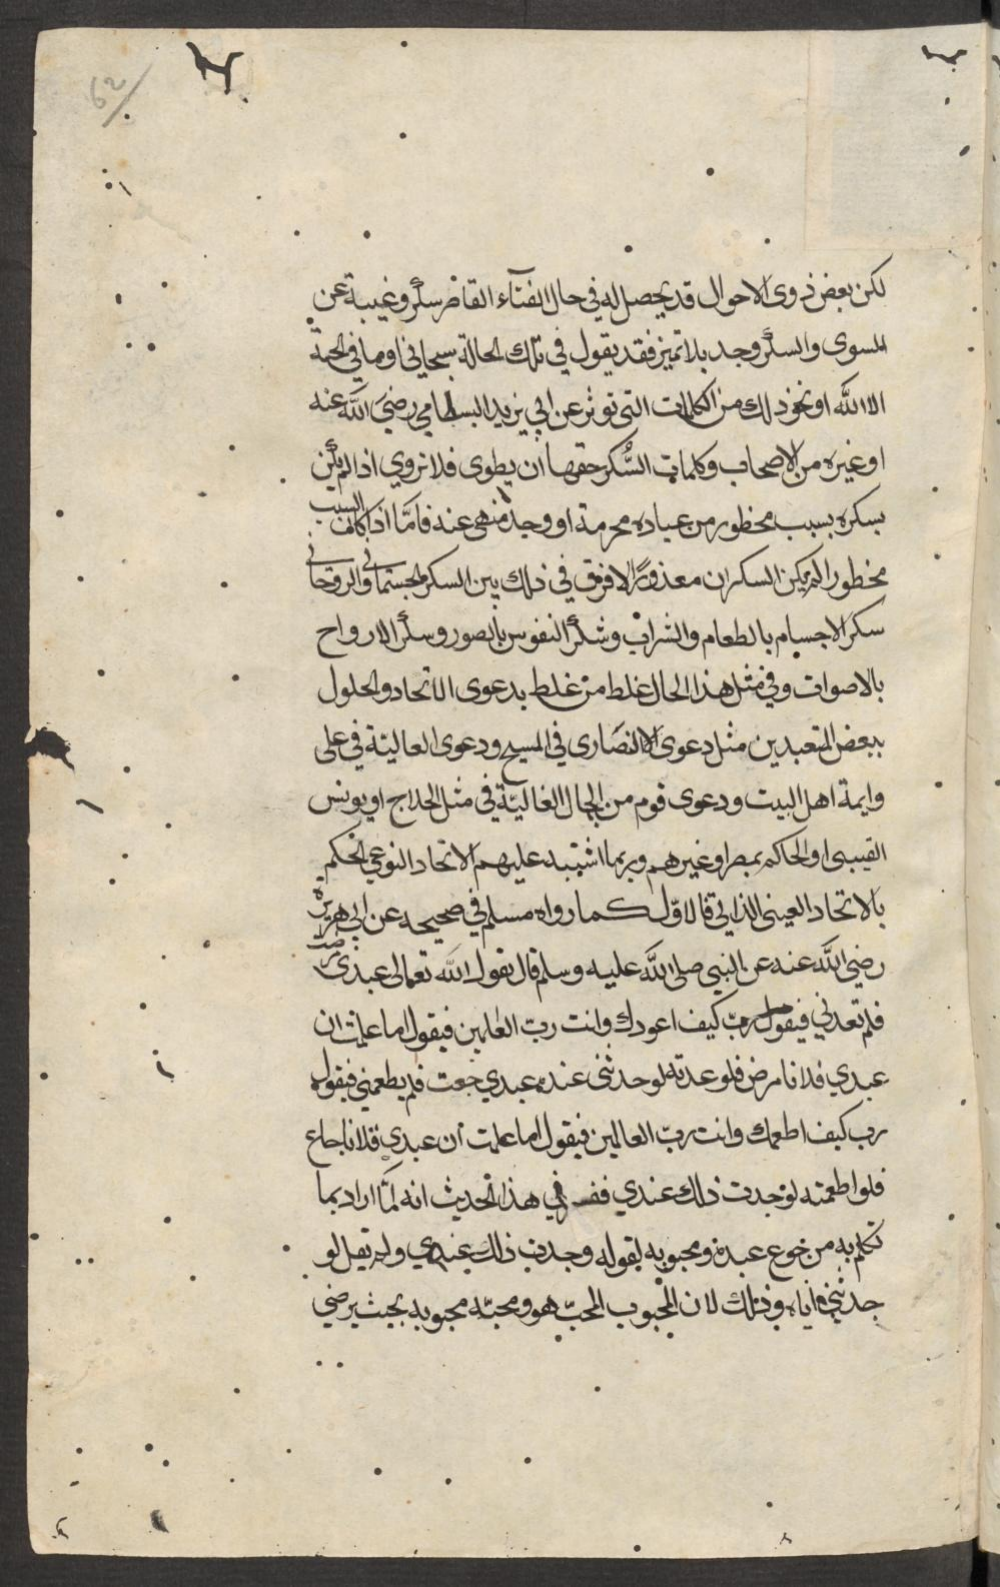 62
لكن بعض ذوى الاحوال قد يحصل له في حال الفنآء القاصر سكر وغيبة عن
السوى والسكر وجد بلا تميز فقد يقول في تلك الحالة سبحاني او ما في الجبة
الا الله او نحو ذلك من الكلمات التى توثر عن ابي يزيد البسطامي رضي الله عنه
او غيره من الاصحاب وكلمات السُّكر حقها ان يطوى فلا تروي اذا لم يكن
بسكره بسبب محظور من عباده محرمة او وجد منهى عنه فامَّا اذا كان السبب
محظورا لم يكن السكران معذورًا لا فرق في ذلك بين السكر الجسمانى والروحانى
سكر الاجسام بالطعام والشراب وسُكر النفوس بالصور وسكر الارواح
بالاصوات وفي مثل هذا الحال غلط من غلط بدعوى الاتحاد والحلول
ببعض المتعبدين مثل دعوى النصَارى في المسيح ودعوى الغالية في على
وايمة اهل البيت ودعوى قوم من الجهال الغاليّة في مثل الحلاج او يونس
القيسى او الحاكم بمصر او غيرهم وربما اشتبه عليهم الاتحاد النوعي الحكمى
بالاتحاد العينى الذاتي قالاوّل كما رواه مسلم في صحيحه عن ابي هريرة
رضي الله عنه عن النبي صلى الله عليه وسلم قال يقول الله تعالى عبدى مرضت
فلم تعدني فيقول ربّ كيف اعودك وانت ربّ العالمين فيقول اما علمت ان
عبدي فلانا مرض فلو عدته لوجدتنى عنده عبدي جعت فلم تطعمني فيقول
رب كيف اطعمك وانت ربّ العالمين فيقول اما علمت ان عبدي فلانا جاع
فلو اطعمته لوجدت ذلك عندي ففي هذا الحديث انه لما اراد بما
تكلم به من جوع عبده ومحبوبه لقوله وجدت ذلك عندي ولم يقل لو
جدتني واياه وذلك لان المحبوب المحبّ هو ومحبّه محبوبه بحيث يرضى